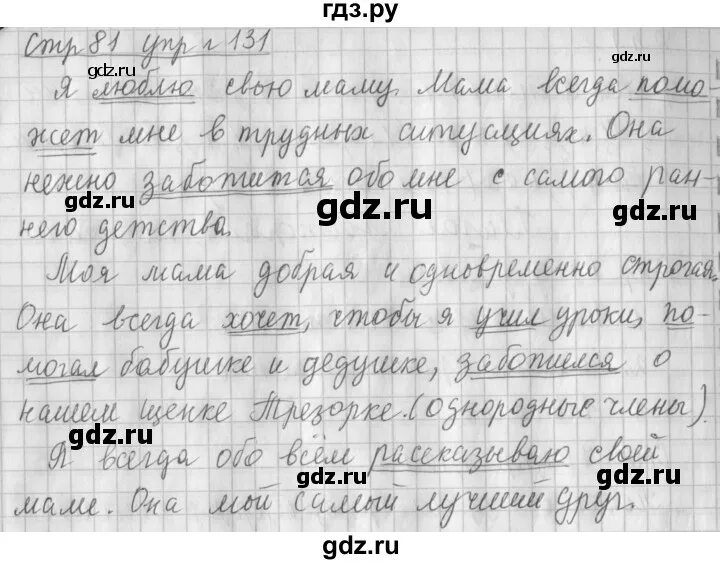 гдз.ру
Стр 81 упр г 131
gdz.ru gdz.ru
Я люблю свою маму. Мама всегда помо-
жет мне в трудных ситуациях. Она
gdz.ru gdz.ru
нежно заботится обо мне с самого ран-
gdz.ru
него детства.
gdz.ru gdz.ru
Моя мама добрая и одновременно строгая.
Она всегда хочет, чтобы я учил уроки, по-
gdz.ru
могал бабушке и дедушке, заботился о
gdz.ru
нашем щенке Трезорке. (однородные члены).
gdz.ru gdz.ru
Я всегда обо всём рассказываю своей
маме. Она мой самый лучший друг.
gdz.ru